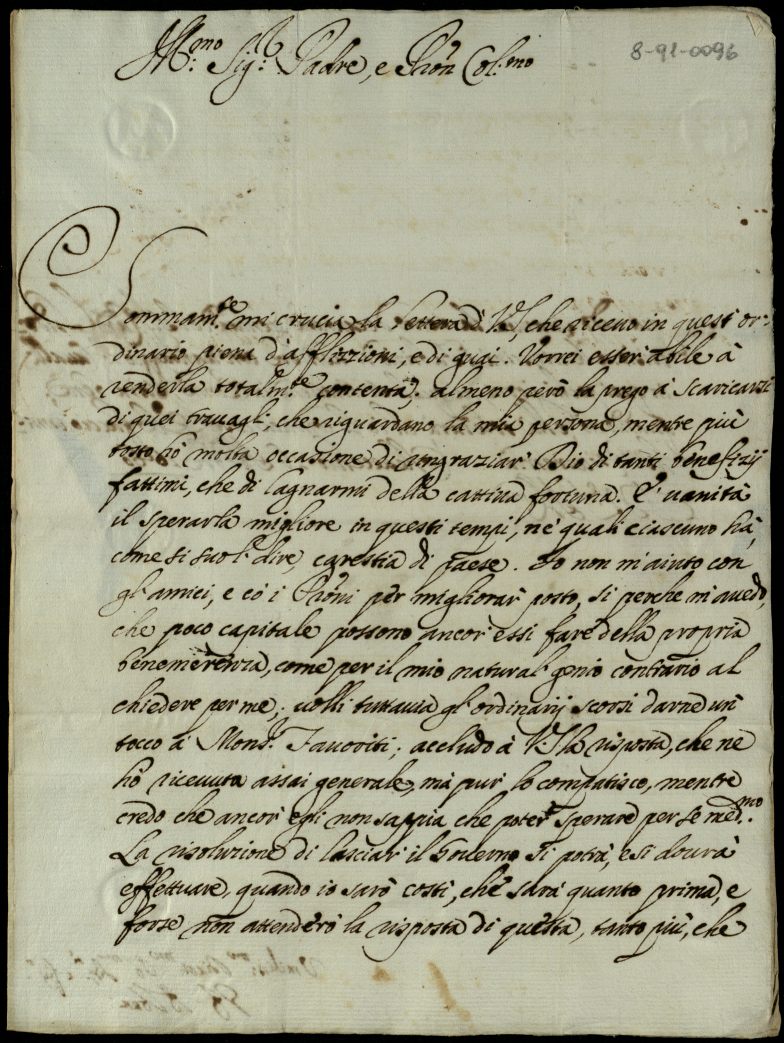 8-91-0096
Ill.mo Sig.r Padre, e Pron Col.mo
Sommam.te mi crucia la lettera di V.S. che ricevo in quest'or-
dinario piena d'afflizzioni, e di guai. Vorrei esser abile à
renderla totalm.te contenta; almeno però la prego à scaricarsi
di quei travagli, che riguardano la mia persona, mentre più
tosto hò molta occasione di ringraziar' Dio di tanti benefizij
fattimi, che di lagnarmi della cattiva fortuna. E' vanità
il sperarla migliore in questi tempi, ne' quali ciascuno hà,
come si suol' dire carestia di paese. Io non m'aiuto con
gl'amici, e cò i Proni per migliorar' posto, si perche m'avedo,
che poco capitale possono ancor' essi fare della propria
benemerenza, come per il mio natural' genio contrario al
chiedere per me; volli tuttavia gl'ordinarij scorsi darne un'
tocco à Mons.r Favoriti; accludo à V.S. la risposta, che ne
hò ricevuta assai generale, mà pur lo compatisco, mentre
credo che ancor' egli non sappia che poter' sperare per se med.mo
La risoluzione di lasciar' il Governo si potrà, e si dovrà
effettuare, quando io sarò costi, che sarà quanto prima, e
forse non attenderò la risposta di questa, tanto più, che